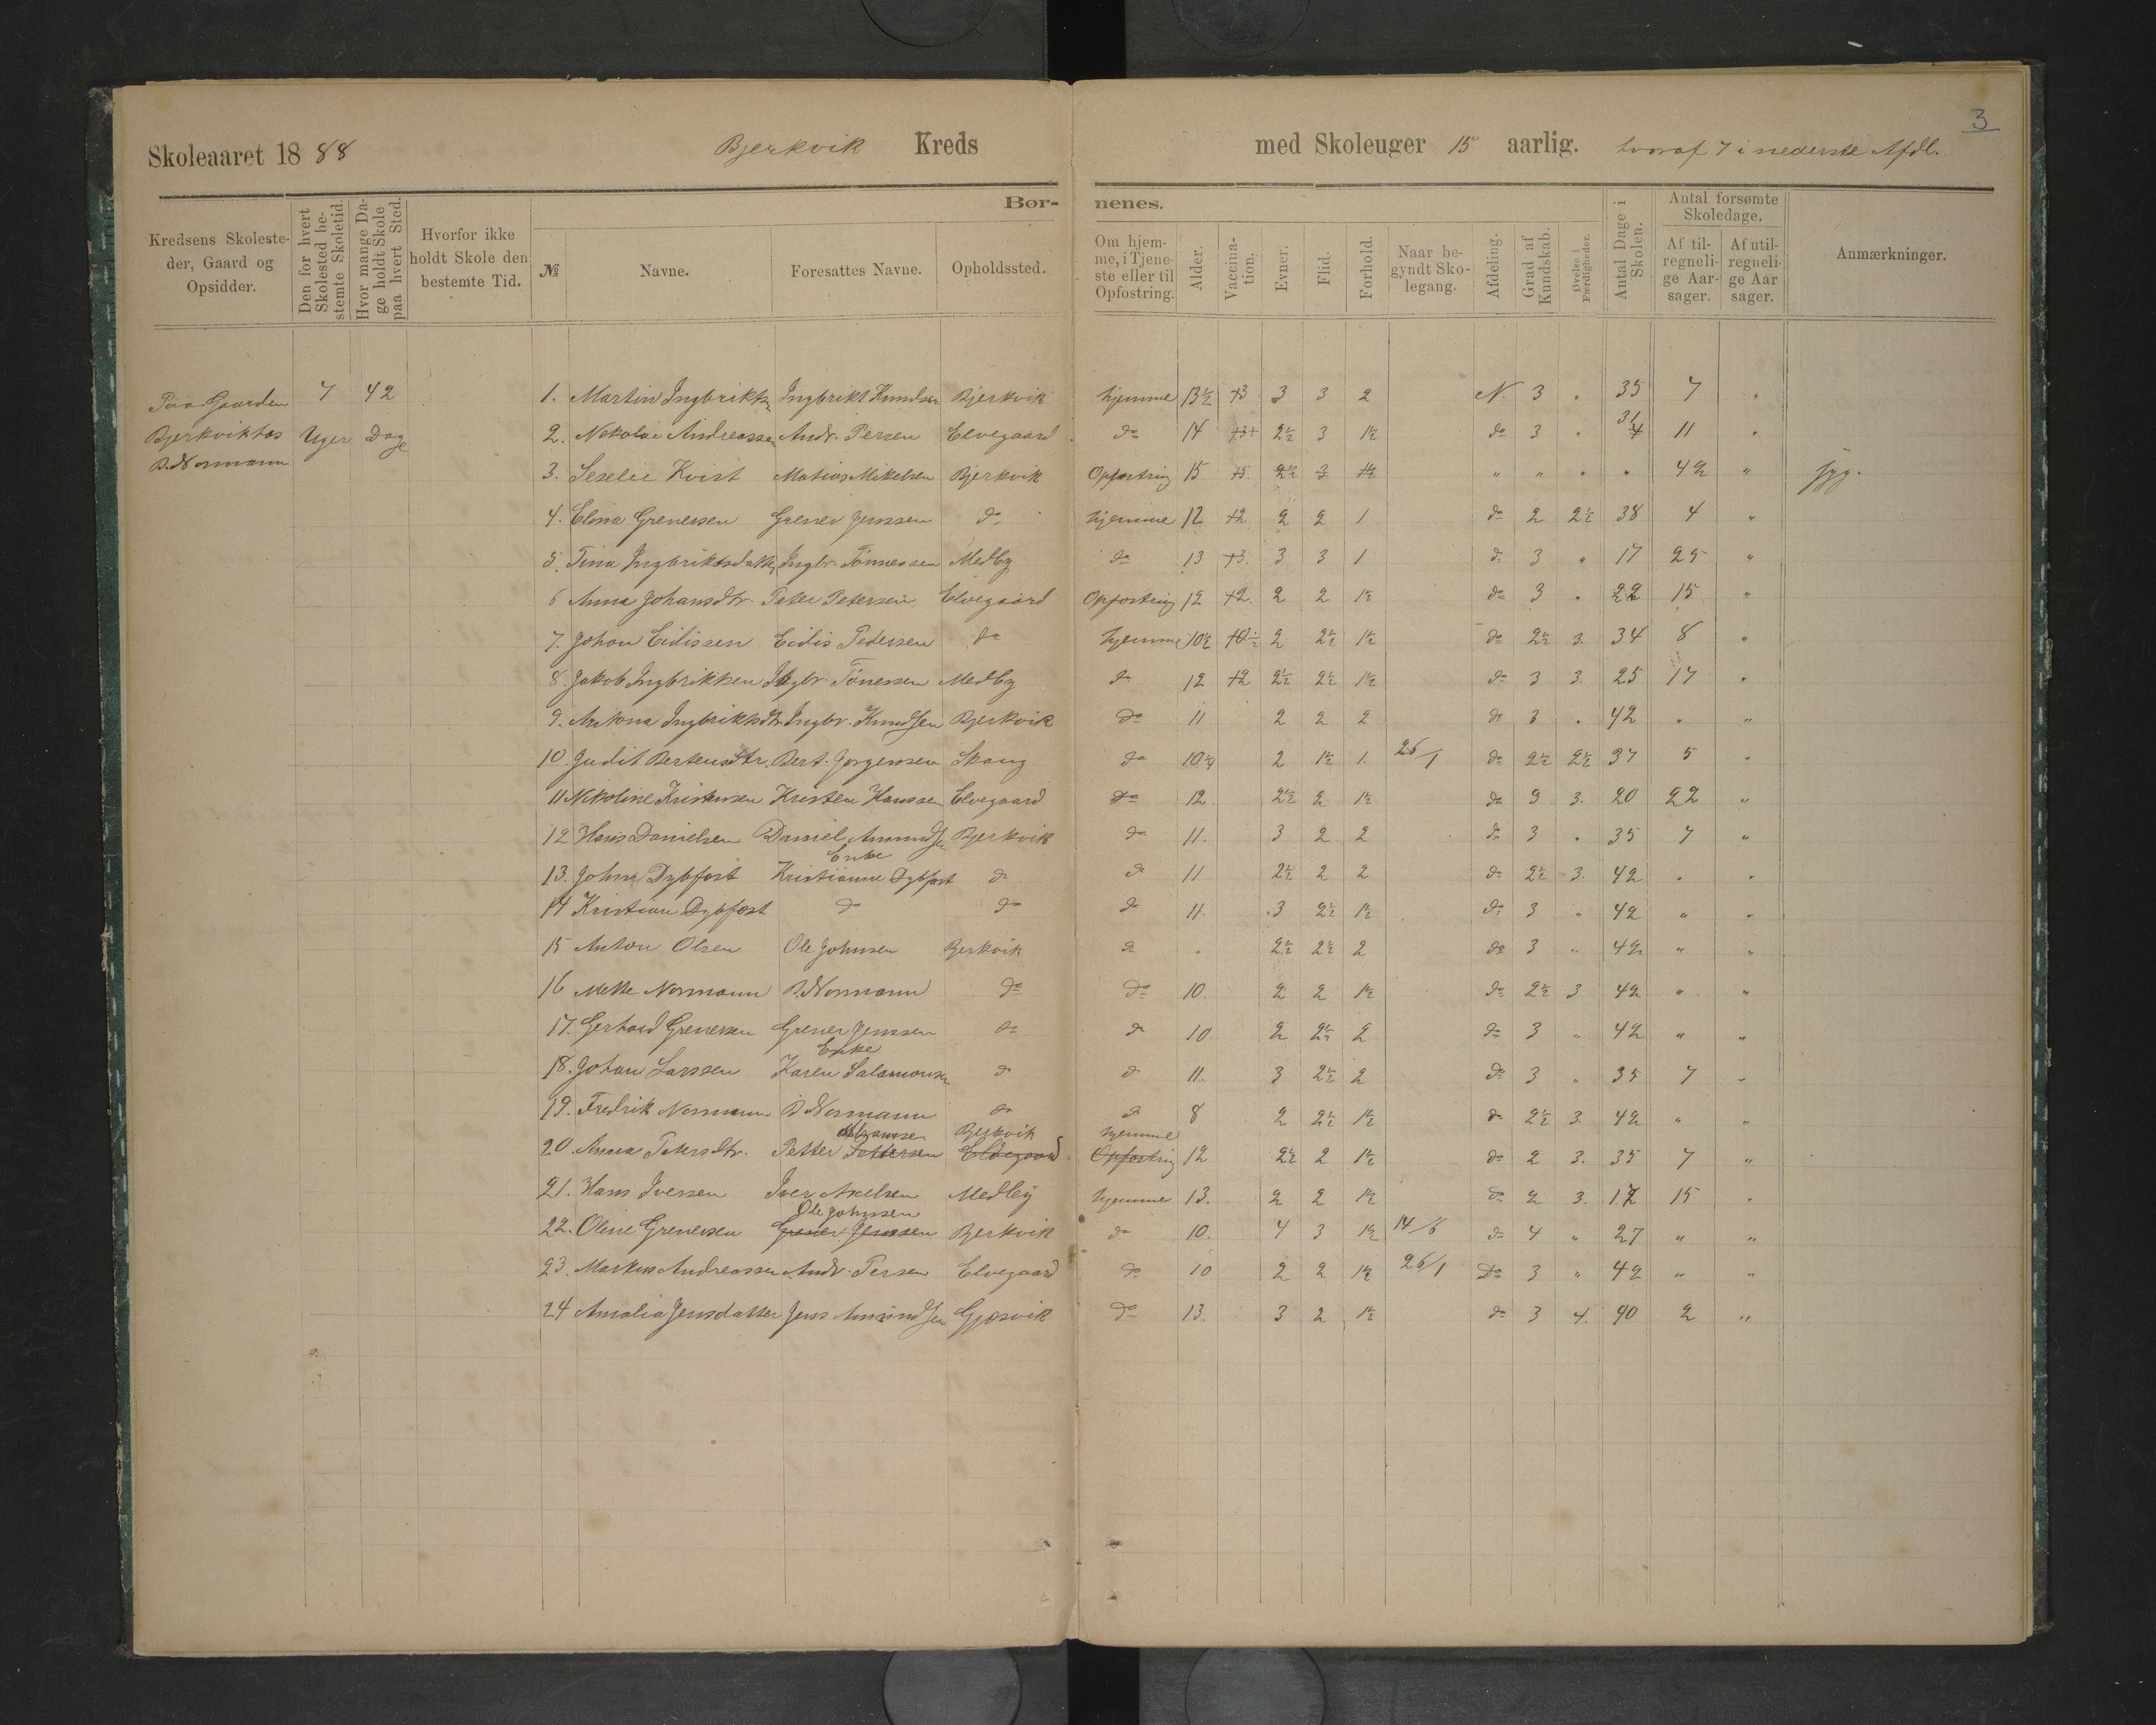 3
Skoleaaret 1888 Bjerkvik Kreds med Skoleuger 15 aarlig. hvoraf 7 i nederste Afdl.
Kredsens Skolesteder, Gaard og Opsidder.
Den for hvert Skolested bestemte Skoletid.
Hvor mange Dage holdt Skole paa hvert Sted.
Hvorfor ikke holdt Skole den bestemte Tid.
Børnenes.
№ Navne. Foresattes Navne. Opholdssted.
Om hjemme, i Tjeneste eller til Opfostring.
Alder. Vaccination. Evner. Flid. Forhold.
Naar begyndt Skolegang.
Afdeling. Grad af Kundskab. Øvelse i Færdigheder. Antal Dage i Skolen.
Antal forsømte Skoledage.
Af tilregnelige Aarsager. Af utilregnelige Aarsager.
Anmærkninger.
Paa Gaarden 7 42
Bjerkvik hos Uger Dage
B. Normann
1. Martin Ingbriktsn Ingbrikt Knudsen Bjerkvik hjemme 13½ +3 3 3 2 N. 3 " 35 7 "
2. Nekolai Andreassen Andr. Persen Elvegaard do 14 +3+ 2½ 3 1½ do 3 " 31 11 "
3. Seselie Kvist Matias Mikelsen Bjerkvik Opfostring 15 +5 2½ 3 1½ " " " " 42 " syg.
4. Elina Grenersen Grener Jenssen do hjemme 12 +2 2 2 1 do 2 2½ 38 4 "
5. Tina Ingbriktsdattr Ingbr. Tønnessen Medby do 13 +3. 3 3 1 do 3 " 17 25 "
6 Anna Johansdtr. Peter Petersen Elvegaard Opfostring 12 +2 2 2 1½ do 3 " 22 15 "
7. Johan Eidissen Eidis Pedersen do hjemme 10½ +0½ 2 2½ 1½ do 2½ 3. 34 8 "
8. Jakob Ingbriktsen Ingbr. Tønessen Medby do 12 +2 2½ 2½ 1½ do 3 3. 25 17 "
9. Antona Ingbriktsdtr Ingbr. Knudsen Bjerkvik do 11 2 2 2 do 3 " 42 " "
10. Judit Bertensdtr. Bert. Jørgensen Skoug do 10¼ 2 1½ 1. 26/1 do 2½ 2½ 37 5 "
11 Nikoline Kristensen Kristen Hanssen Elvegaard do 12 2½ 2 1½ do 3 3. 20 22 "
12 Hans Danielsen Daniel Amundsen Bjerkvik do 11. 3 2 2 do 3 " 35 7 "
Enke
13. Johan Dybfest Kristianne Dybfest do do 11 2½ 2 2 do 2½ 3. 42 " "
14 Kristian Dybfest do do do 11. 3 2½ 1½ do 3 " 42 " "
15 Anton Olsen Ole Johnsen Bjerkvik do " 2½ 2½ 2 do 3 " 42 " "
16 Mette Normann B. Normann do do 10. 2 2 1½ do 2½ 3 42 " "
17. Gerhard Grenersen Grener Jenssen do do 10 2 2½ 2 do 3 " 42 " "
Enke
18. Johan Larssen Karen Salamonsen do do 11. 3 2½ 2 do 3 " 35 7 "
19. Fredrik Normann B Normann do do 8 2 2½ 1½ do 2½ 3. 42 " "
Bjerkvik hjemme
20. Anna Petersdtr. Petter Pettersen Elvegaard Opfostring 12 2½ 2 1½ do 2 3. 35 7 "
21. Hans Iversen Iver Axelsen Medby hjemme 13. 2 2 1½ do 2 3. 17 15 "
Ole Johnsen
22. Oline Grenersen Grener Jenssen Bjerkvik do 10. 4 3 1½ 14/6 do 4 " 27 " "
23. Markus Andreassen Andr. Persen Elvegaard do 10 2 2 1½ 26/1 Do 3 " 42 " "
24 Amalia Jensdatter Jens Amundsen Gjøsvik do 13. 3 2 1½ do 3 4. 40 2 "